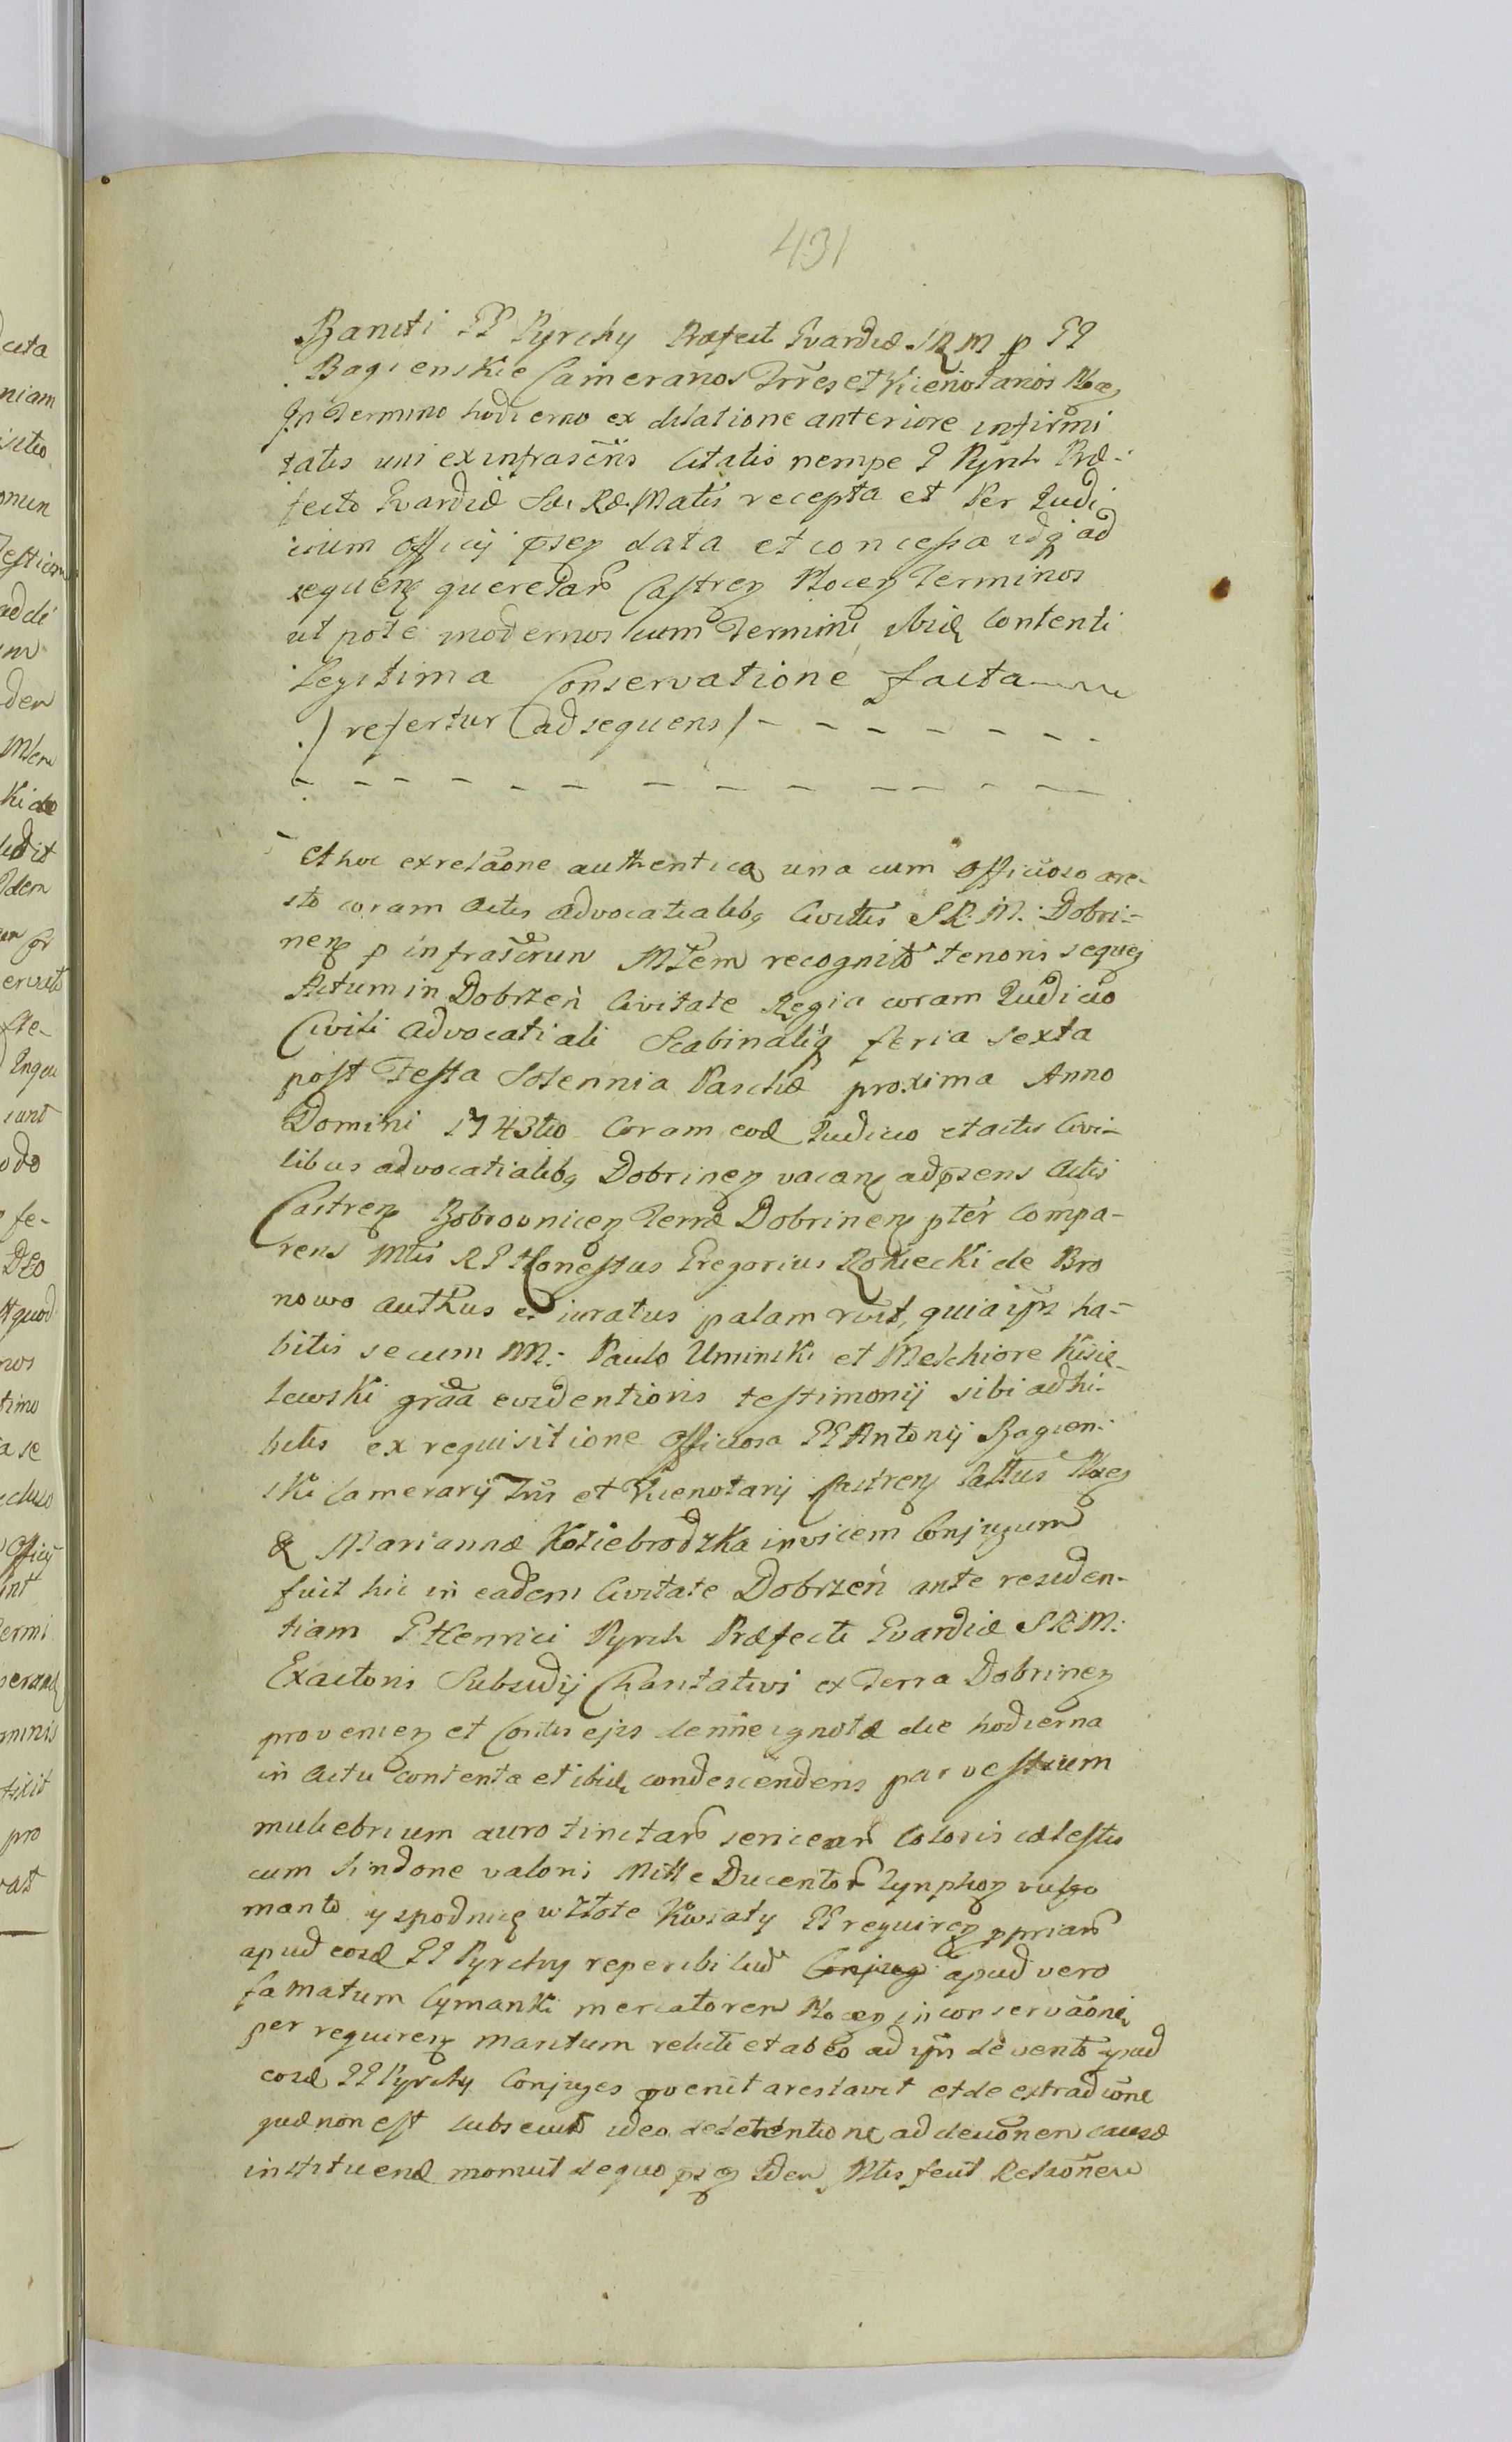 431
Baniti PP Pyrchy Præfect Gvardiæ SRM p PP
Bagienskie Camerarios Trres et Vicenotarios Ploc
In Termino hodierno ex dilatione anteriore infirmi
tatis uni ex infrascris Citatis nempe P Pyrch Præ-
fecto Gvardiæ Sæ Ræ Matis recepta et Per Judi
cium Officij pnsen data et concessa idq ad
sequen querelar Castren Plocen Terminos
ut pote modernos cum Termini ibid Contenti
Legitima Conservatione facta
/ refertur ad sequens / - - - - - - -
- - - - - - - - - - - - -
et hoc ex relaone authentica una cum Officioso are-
sto coram Actis Advocatialibq Civittis S.R.M. Dobri-
nen p infrascrum Mtem recognito tenoris sequen
Actum in Dobrzeń Civitate Regia coram Judicio
Civili Advocatiali Scabinaliq feria sexta
post Festa Solennia Paschæ proxima Anno
Domini 1743tio Coram eod Judicio et actis Civi-
libus advocatialibq Dobrinen vacan ad pnsens Actis
Castren Bobrovnicen Terræ Dobrinen pter Compa-
rens Mtis R P Honestus Gregorius Rokiecki de Bro
nowo Authus et iuratus palam rvit, quia ips ha-
bitis secum NN: Paulo Uminski et Melchiore Kisie-
lewski graa evidentioris testimonij sibi adhi-
bitis ex requisitione Officiosa PP Antonij Bagien-
ski Camerarij Tris et Vicenotarij Castren Calttus Ploc
& Mariannæ Koziebrodzka invicem Conjugum
fuit hic in eadem Civitate Dobrzeń ante residen-
tiam P Henrici Pyrch Præfecti Gvardiæ SRM:
Exactoris Subsidij Charitativi ex Terra Dobrinen
provenien et Contis ejus de nne ignotæ die hodierna
in Actu contenta et ibid condescendens par vestium
muliebrium auro tinctar sericear Coloris cælestis
cum sindone valoris Mille Ducentor Tynphon vulgo
manto y spodnicę w złote Kwiaty PP requiren ppriar
apud eosd PP Pyrchy reperibilium apud vero
famatum Cymanki mercatorem Plocen in conservaone
per requiren maritum relicti et ab eo ad ips devento apud
eosd PP Pyrchy Conjuges pvenit arestavit et de extradione
quæ non est subsecuta ideo de detentione ad decionem causæ
instituend monuit de quo psen Idem Mtis fecit Relaonem